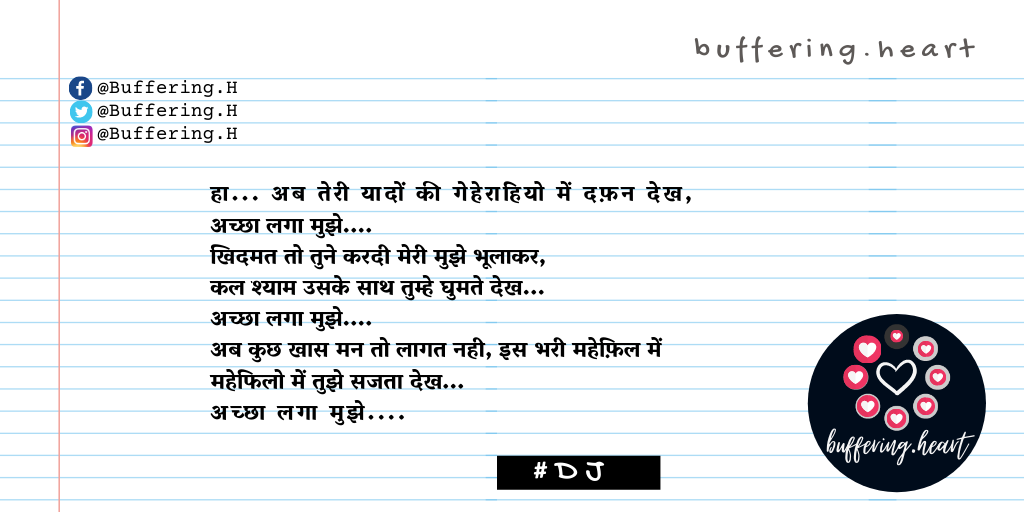 buffering.heart
@Buffering.H
@Buffering.H
@Buffering.H
हा... अब तेरी यादों की गेहेराहियो में दफ़न देख,
अच्छा लगा मुझे....
खिदमत तो तुने करदी मेरी मुझे भूलाकर,
कल श्याम उसके साथ तुम्हे घुमते देख...
अच्छा लगा मुझे....
अब कुछ खास मन तो लागत नही, इस भरी महेफ़िल में
महेफिलो में तुझे सजता देख...
अच्छा लगा मुझे....
buffering.heart
#DJ